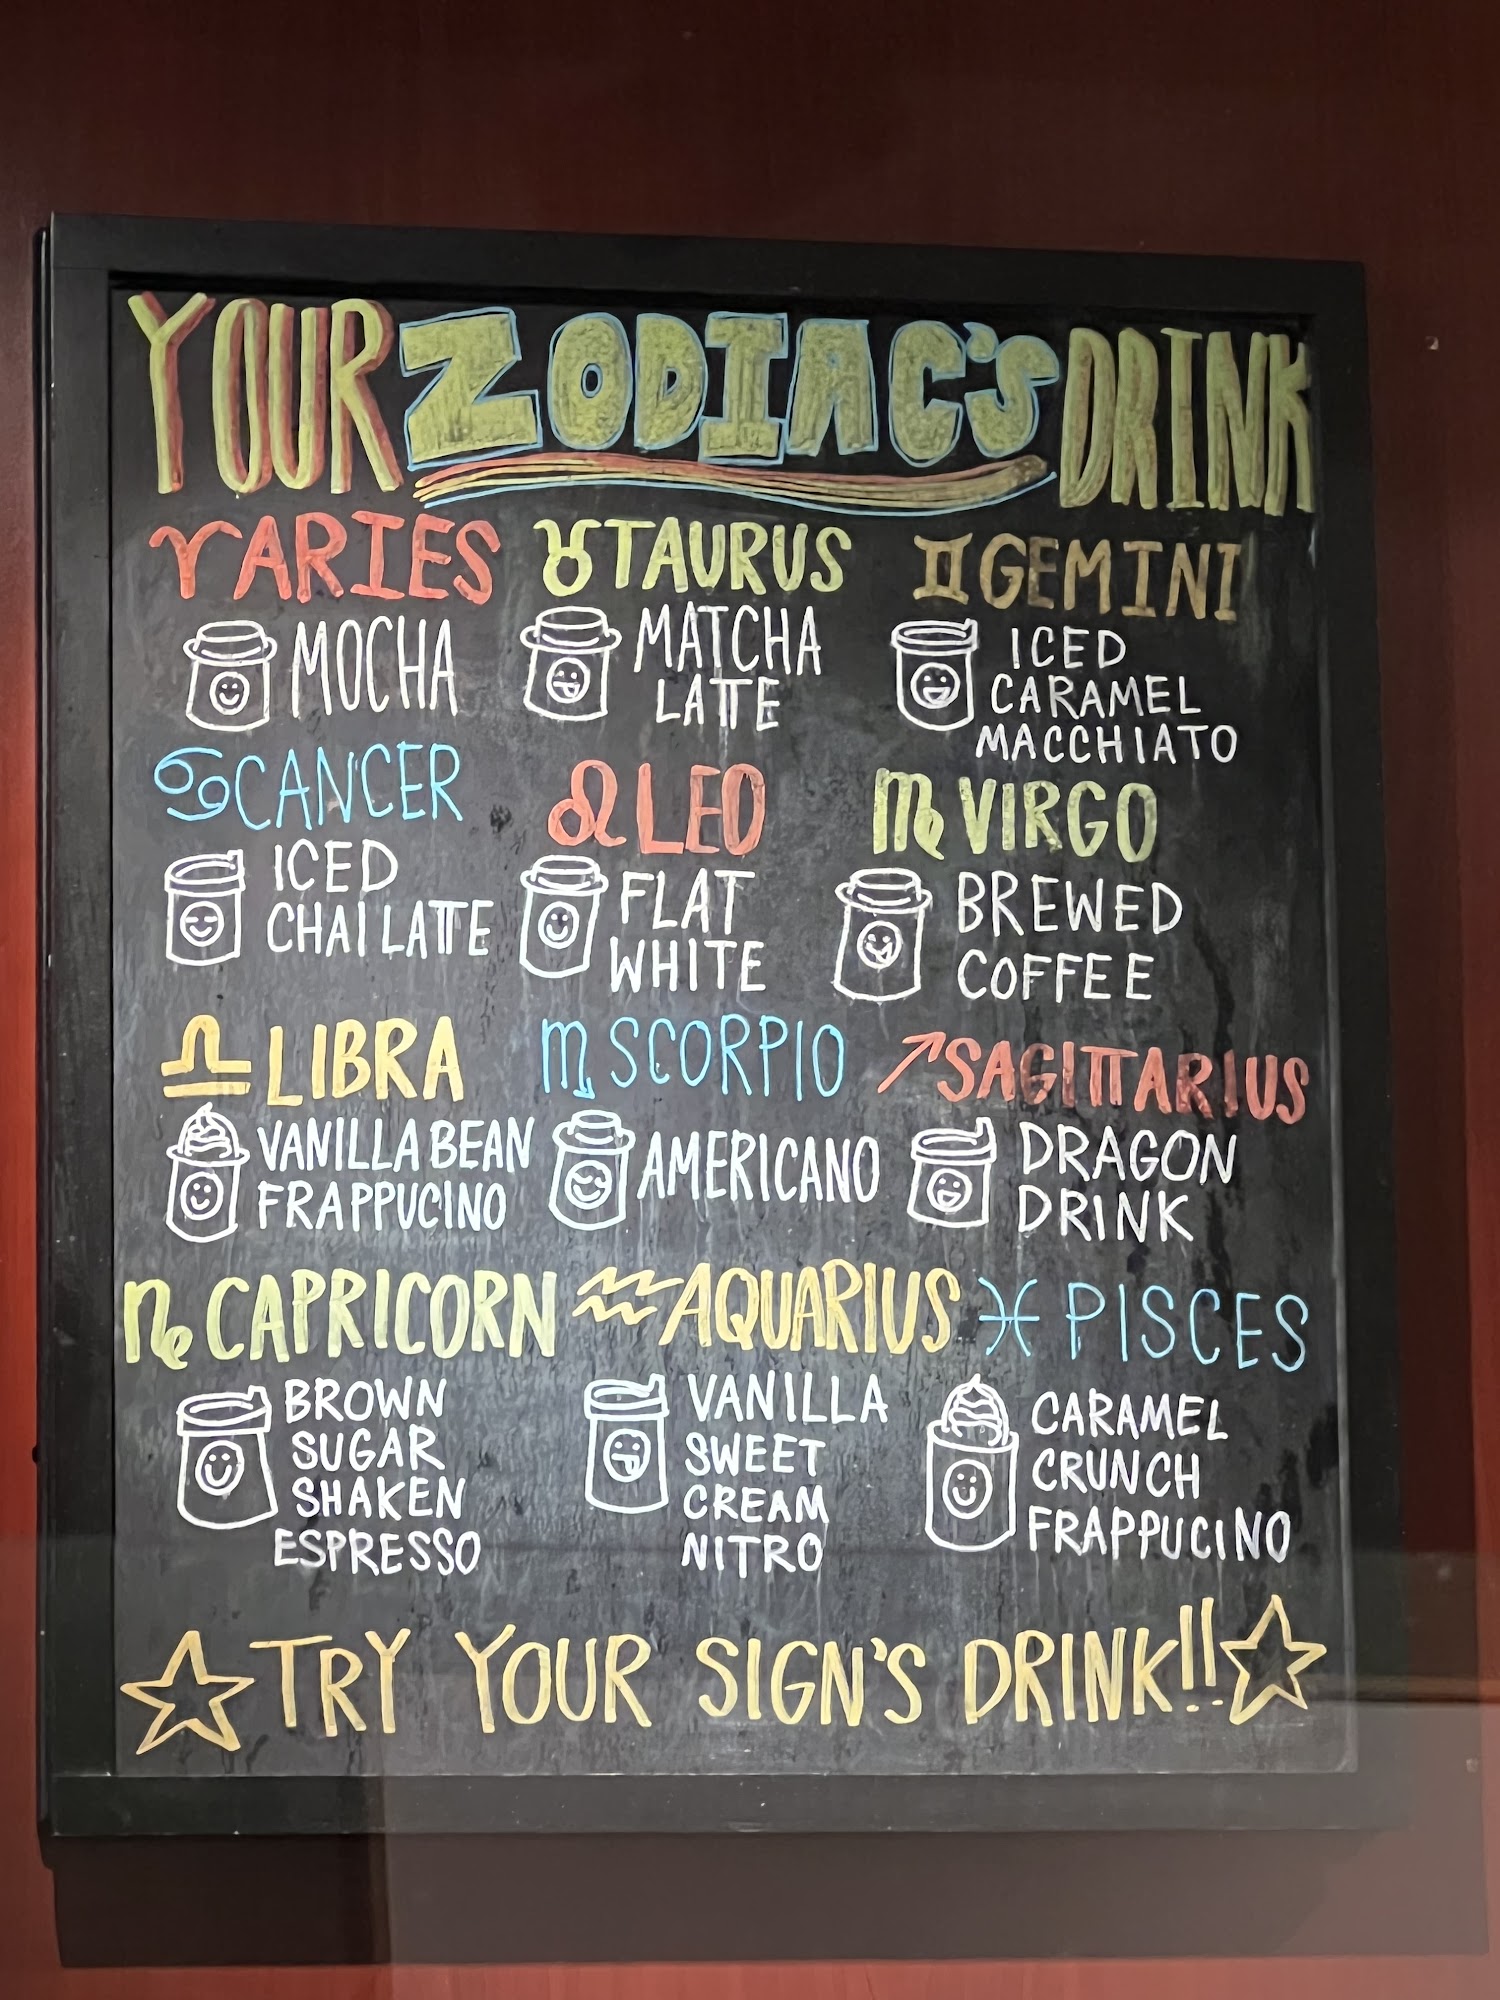 YOUR ZODIAC'S DRINK
♈ARIES
MOCHA
♉TAURUS
MATCHA
LATTE
♊GEMINI
ICED
CARAMEL
MACCHIATO
♋CANCER
ICED
CHAI LATTE
♌LEO
FLAT
WHITE
♍VIRGO
BREWED
COFFEE
♎LIBRA
VANILLA BEAN
FRAPPUCINO
♏SCORPIO
AMERICANO
♐SAGITTARIUS
DRAGON
DRINK
♑CAPRICORN
BROWN
SUGAR
SHAKEN
ESPRESSO
♒AQUARIUS
VANILLA
SWEET
CREAM
NITRO
♓PISCES
CARAMEL
CRUNCH
FRAPPUCINO
☆TRY YOUR SIGN'S DRINK!!☆